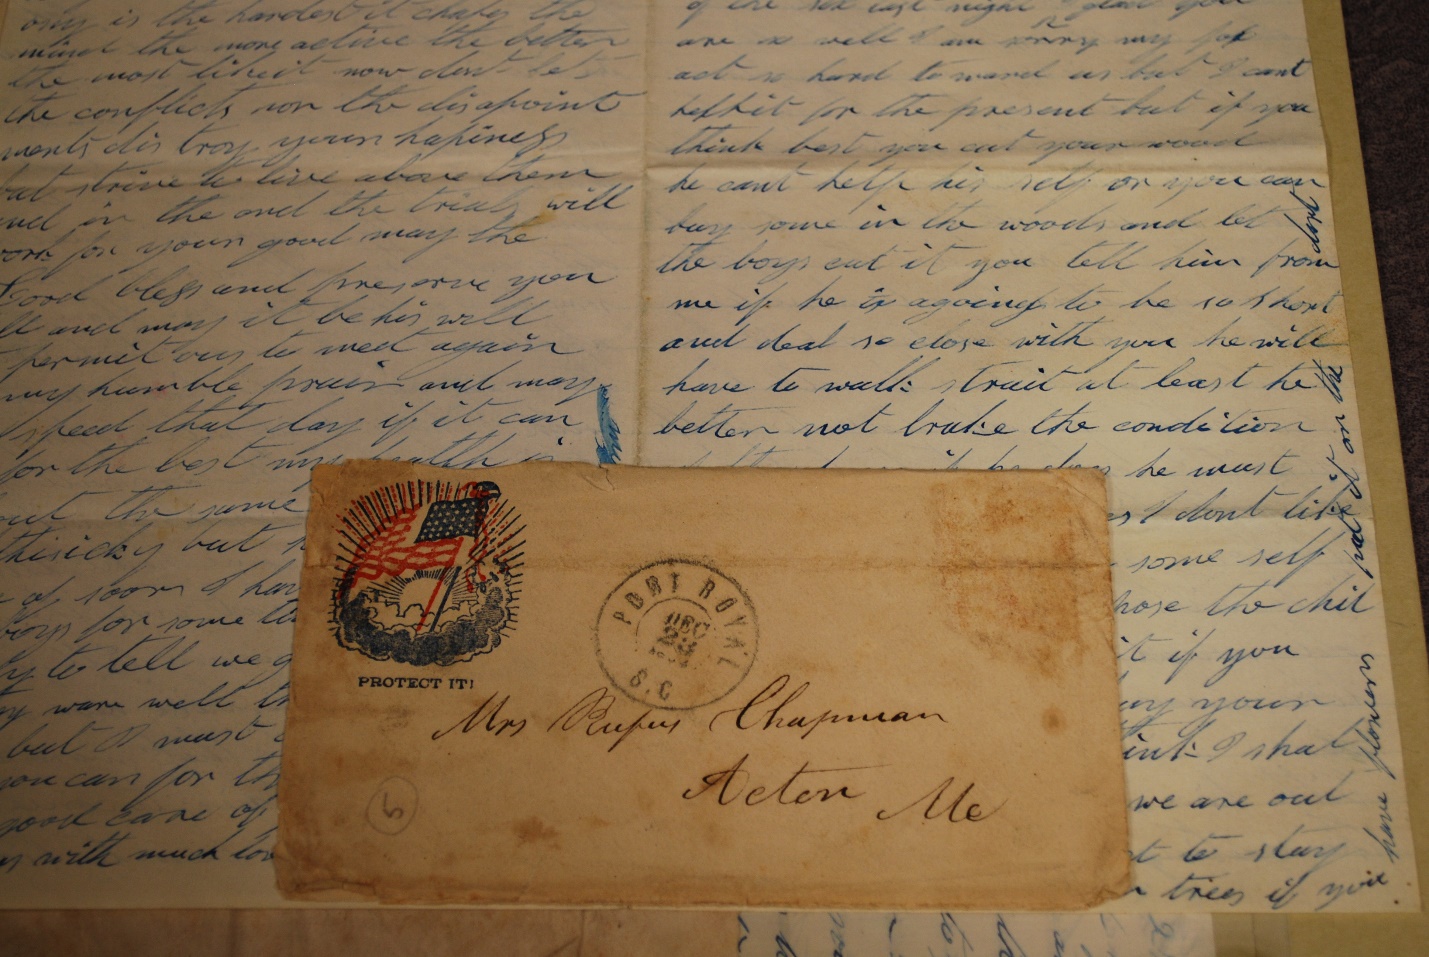 only is the hardest it chafes the
mind the more active the better
the most like it now dont let
the conflicts nor the disapoint
ments dis troy your hapiness
but strive to live above them
and in the end the trials will
work for your good may the
Good bless and preserve you
all and may it be his will
permit ous to meet again
my humble prair and may
speed that day if it can
for the best my health is
out the same
thisicky but
of soon I hav
boys for some ti
to tell we g
ware well th
but I must
you can for th
good care of
us with much lov
of the six last night glad you
are so well I am sorry my fox
act so hard to ward us but I cant
helpit for the present but if you
think best you cut your wood
he cant help his self or you can
buy some in the woods and let
the boys cut it you tell him from
me if he is agoing to be so short
and deal so close with you he will
have to walk strait at least he
better not brake the condition
if he does he must
I dont like
some self
hose the chil
it if you
your
ink I shal
we are out
to stay
trees if you
have flowers put it on the
dont
PROTECT IT!
PORT ROYAL
DEC
23
S.C
Mrs Rufus Chapman
Acton Me
5